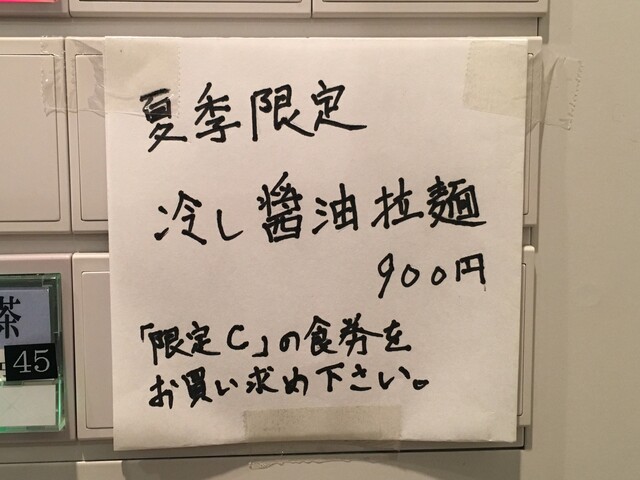 夏季限定
冷し醤油拉麺
900円
「限定C」の食券を
お買い求め下さい。
茶
45